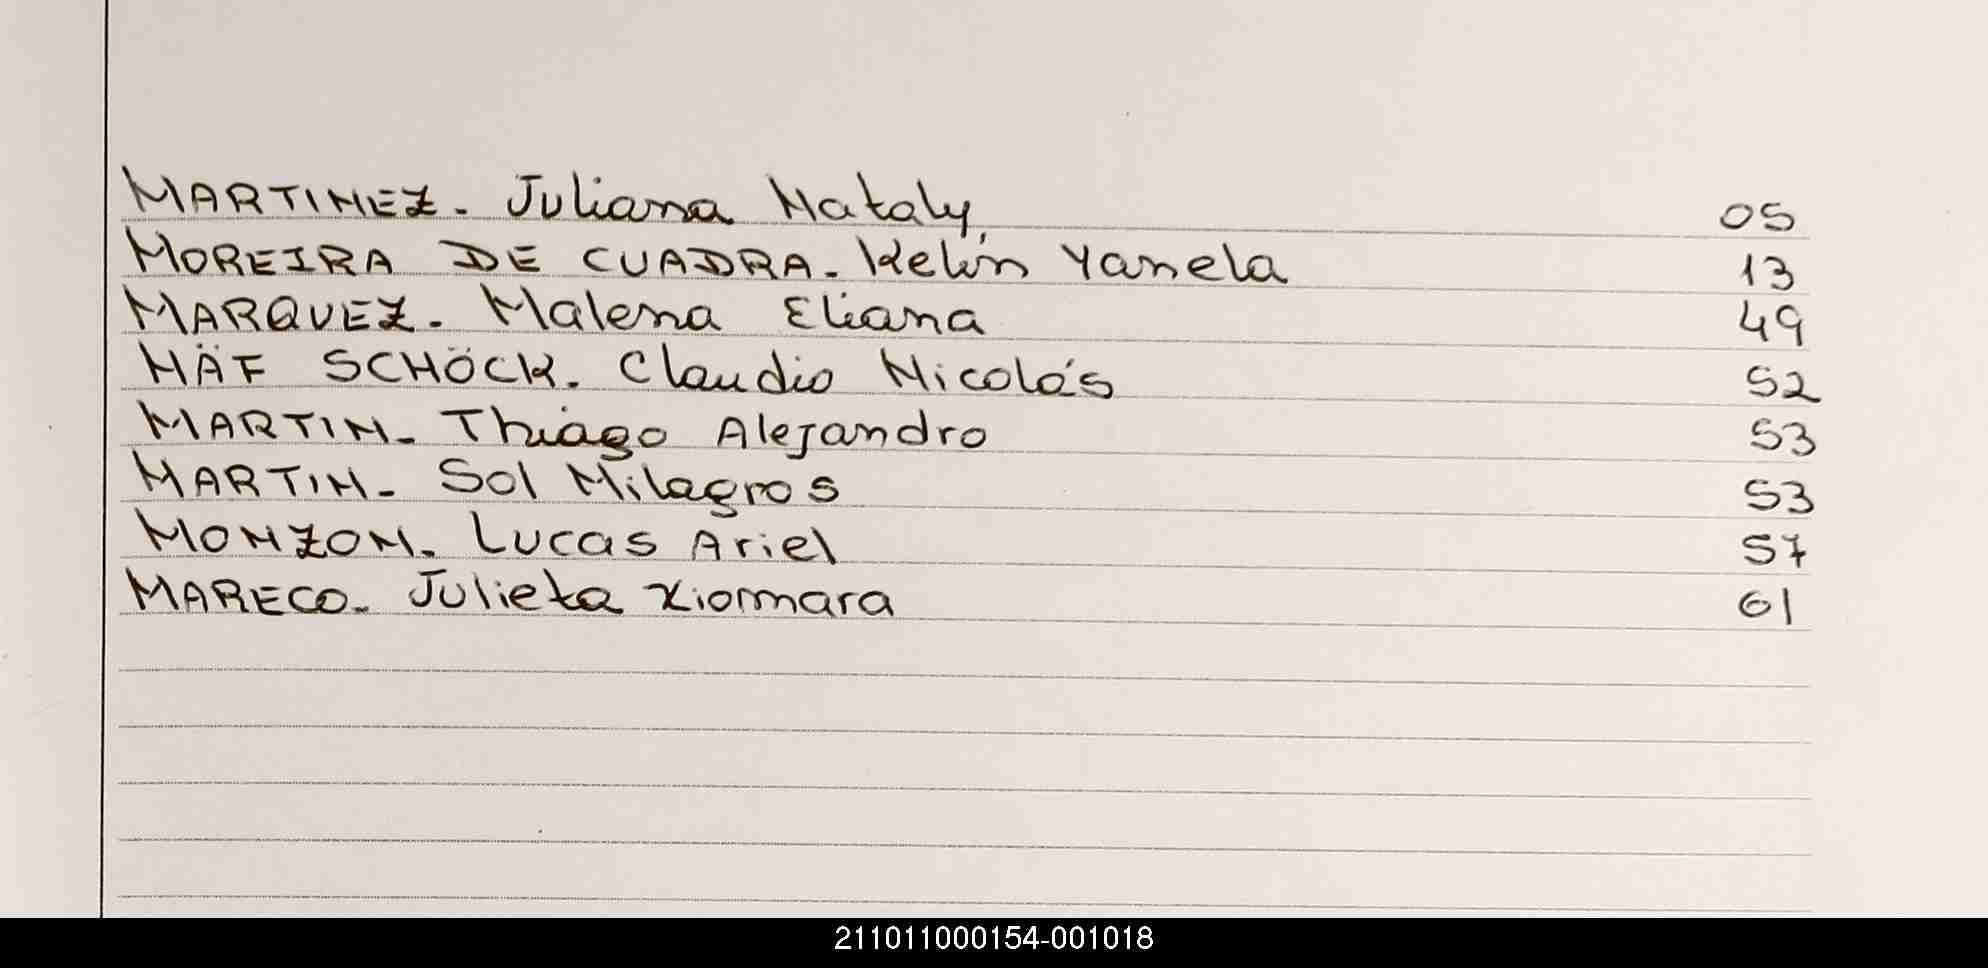 MARTINEZ. Juliana Nataly 05
MOREIRA DE CUADRA. Kelin Yanela 13
MARQUEZ. Malena Eliana 49
NÄF SCHÖCK. Claudio Nicolás 52
MARTIN. Thiago Alejandro 53
MARTIN. Sol Milagros 53
MONZON. Lucas Ariel 57
MARECO. Julieta Xiomara 61
211011000154-001018